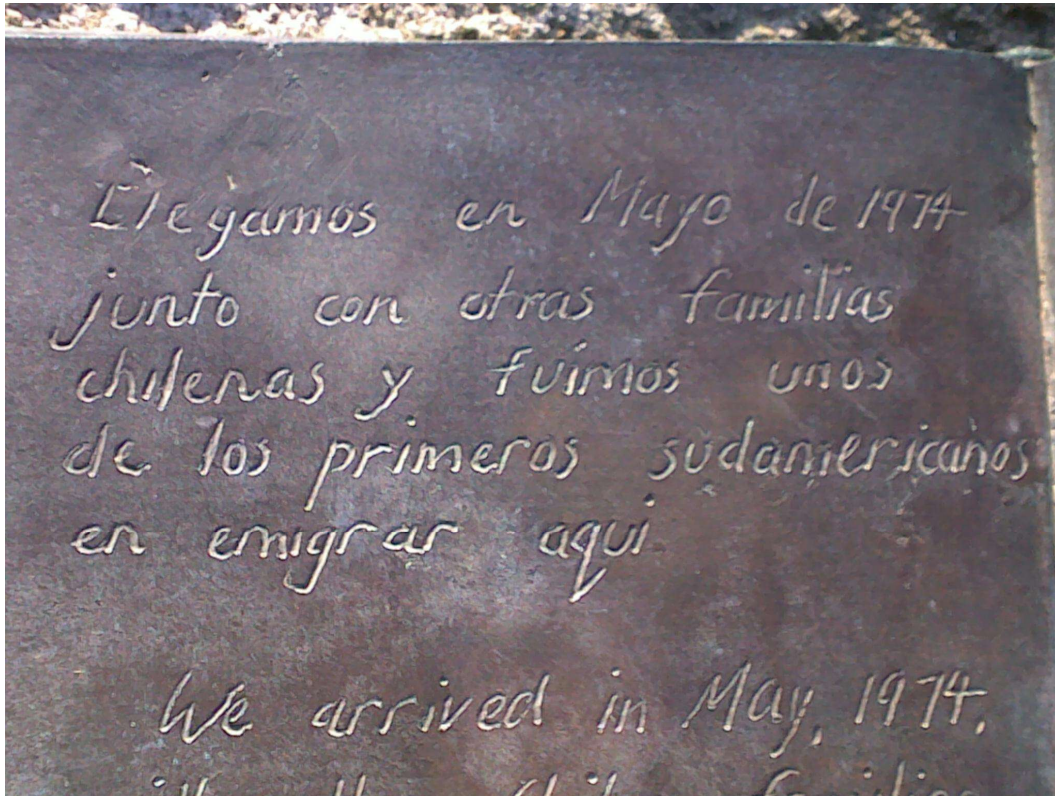 Llegamos en Mayo de 1974
junto con otras familias
chilenas y fuimos unos
de los primeros sudamericanos
en emigrar aqui
We arrived in May, 1974,
families